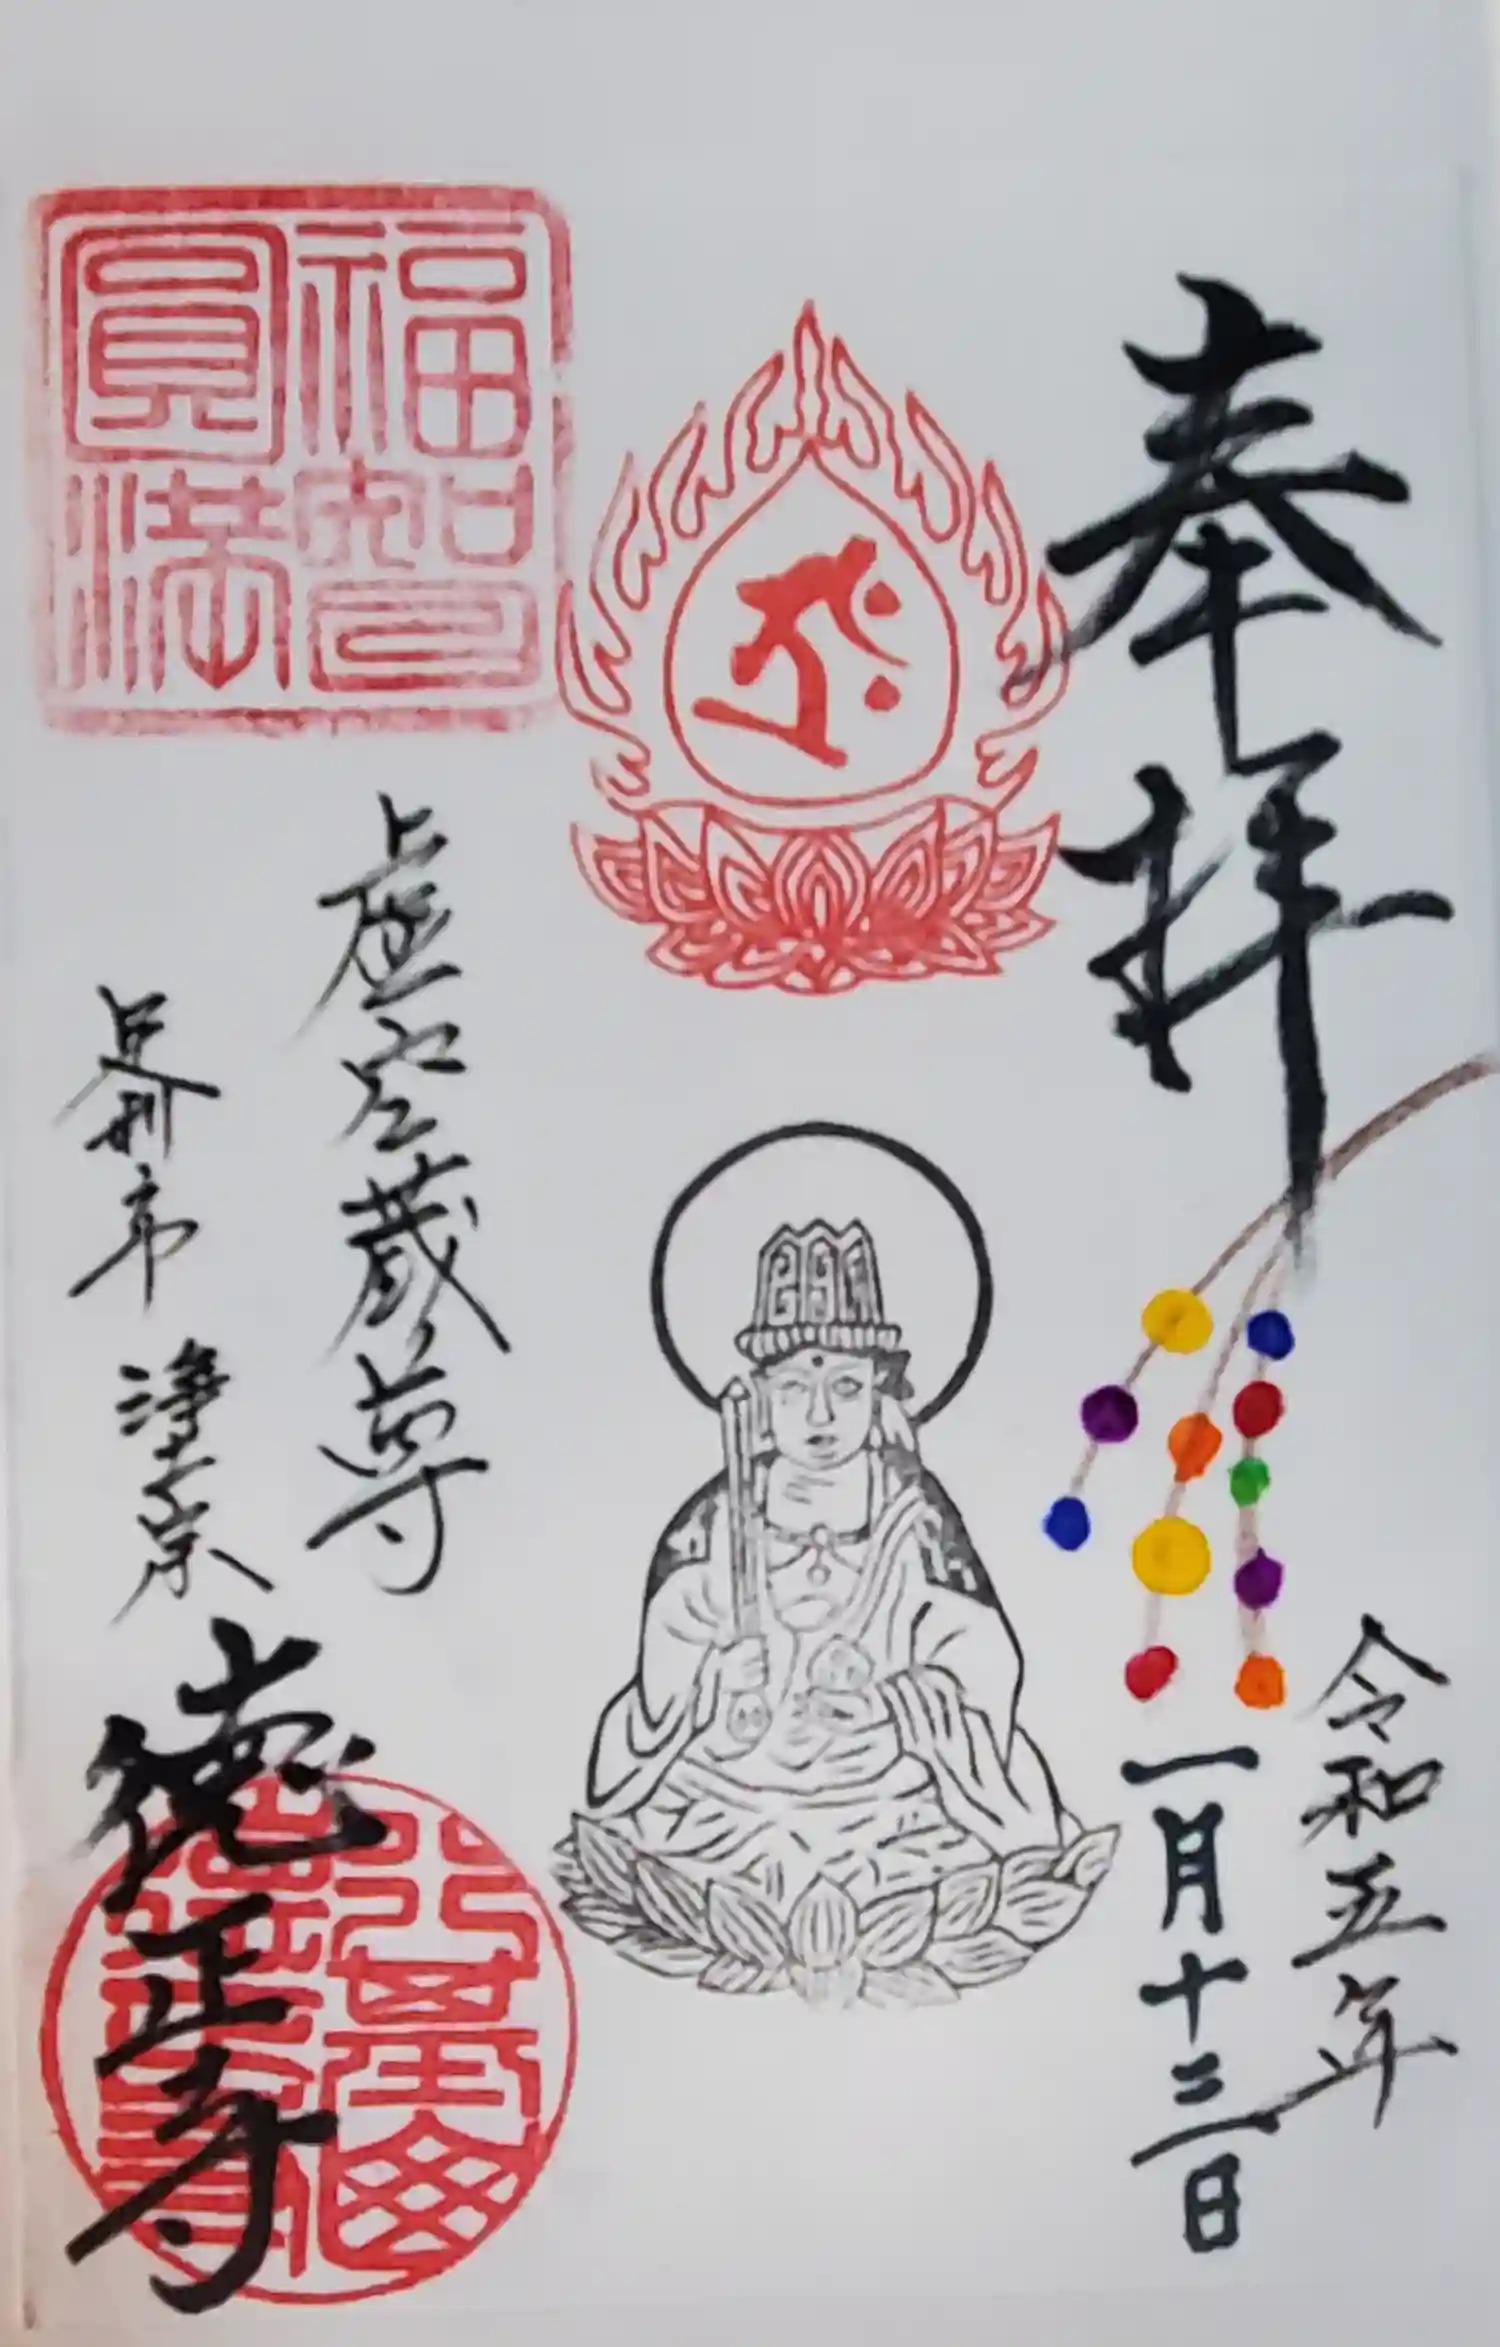 奉拝
令和五年
一月十三日
福智
圓満
虚空蔵尊
足利市 浄土宗
徳正寺